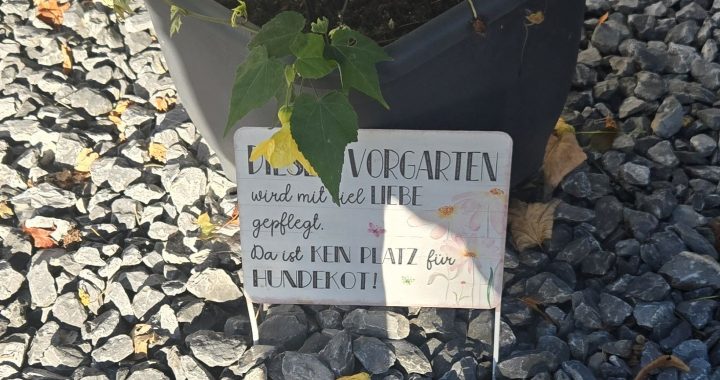 DIESER VORGARTEN
wird mit viel LIEBE
gepflegt.
Da ist KEIN PLATZ für
HUNDEKOT!